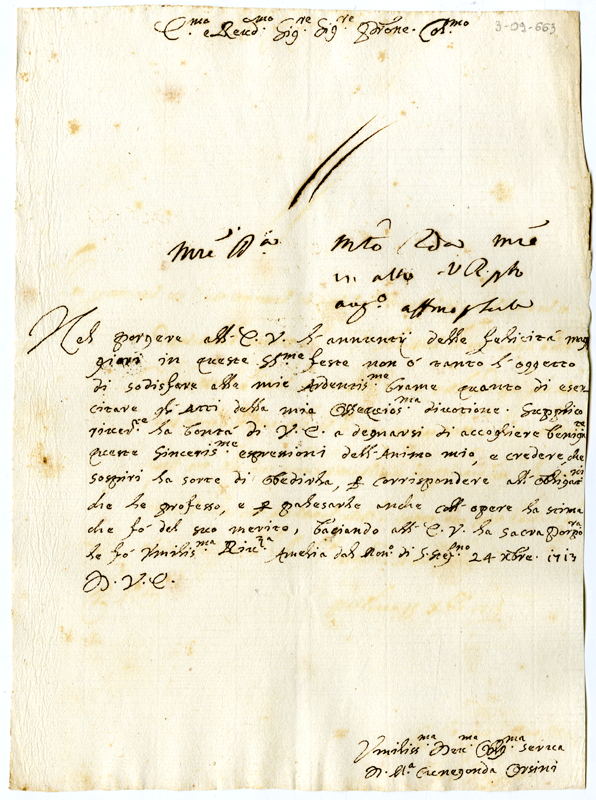 E.ma e Reud.mo Sig.re Sig.re Prone. Col.mo
3-09-663
Nel porgere all' E. V. li annuntij delle felicità mag
giori in queste SS.me feste non è tanto l' oggetto
di sodisfare alle mie Ardentis.me brame quanto di eser
citare gli Atti della mia Ossequios.ma divotione. Supplico
river.te la bontà di V. E. a degnarsi di accogliere benign.te
queste sinceris.me espressioni dell' Animo mio, e credere che
sospiri la sorte di obedirla, p corrispondere all' obligat.ni
che le professo, e p palesarle anche coll' opere la stima
che fò del suo merito, baciando all' E. V. la sacra Porpora
le fò Vmilis.ma Riv.za Amelia dal Mon.o di S. Mag.no 24 xbre. 1713
D. V. E.
Vmiliss.ma Deu.ma Obg.ma serua
D. M.a Cunegonda Orsini